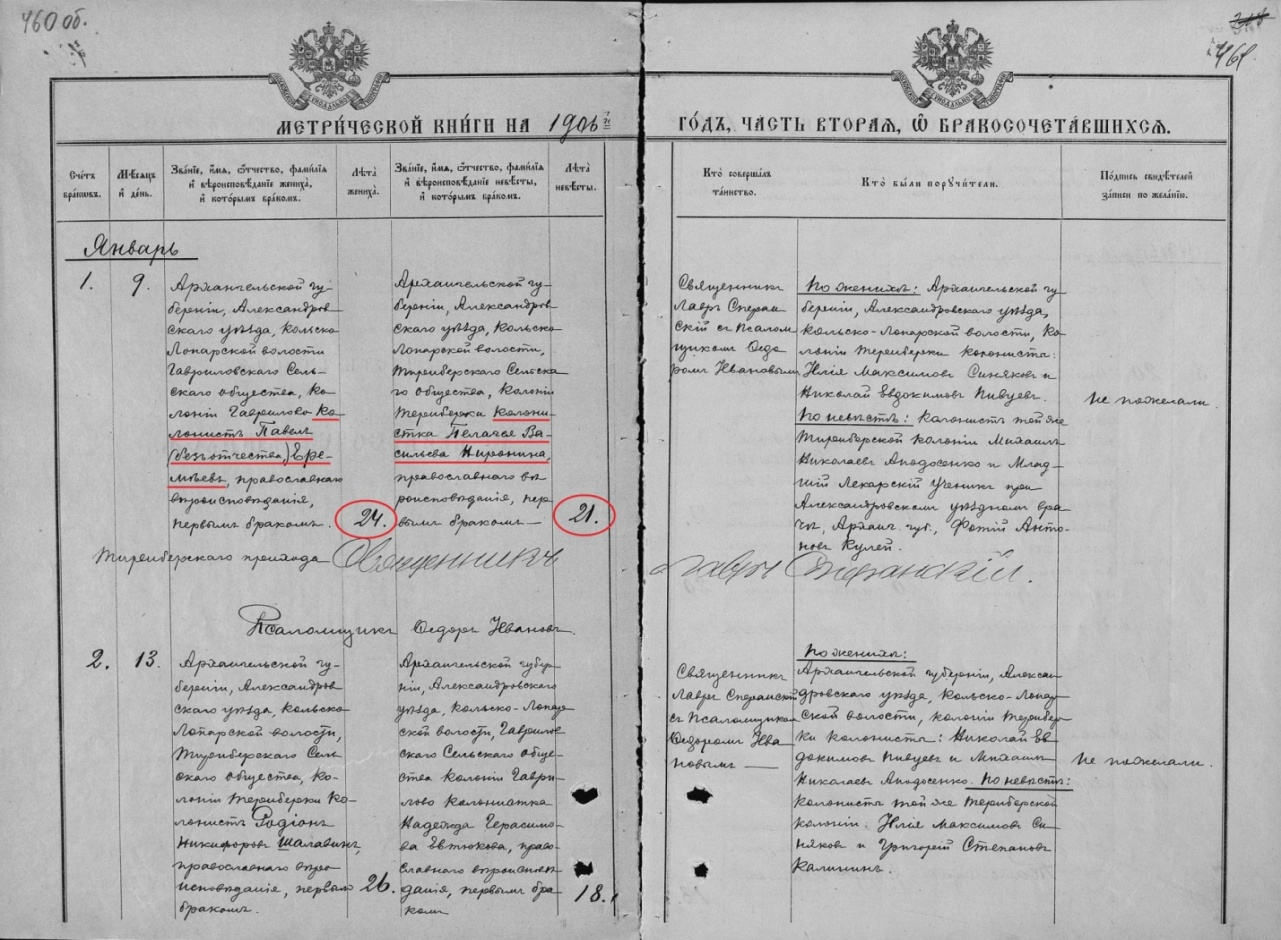 460 об.
318
461
МЕТРИ́ЧЕСКОЙ КНИ́ГИ НА 1906 й
ГО́ДЪ, ЧА́СТЬ ВТОРА́Я, Ѿ БРАКОСОЧЕТА́ВШИХСЯ.
Сче́тъ бра́ковъ.
Мѣ́сяцъ и҆ де́нь.
Зва́нїе, и҆́мя, ѻ҆́тчество, фами́лїя
и҆ вѣроисповѣ́данїе жениха̀,
и҆ кото́рымъ бра́комъ.
Лѣ́та
жениха̀.
Зва́нїе, и҆́мя, ѻ҆́тчество, фами́лїя
и҆ вѣроисповѣ́данїе невѣ́сты,
и҆ кото́рымъ бра́комъ.
Лѣ́та
невѣ́сты.
Кто̀ соверша́лъ
та́инство.
Кто̀ бы́ли пору́чители.
По́дпись свидѣ́телей
за́писи по жела́нїю.
Январь
1.
9.
Архангельской гу-
берніи, Александров
скаго уѣзда, Кольско
Лопарской волости
Гавриловскаго Сель-
скаго общества, ко-
лоніи Гаврилово ко-
лонистъ Павелъ
(безъ отчества) Ере-
мѣевъ, православнаго
вѣроисповѣданія,
первымъ бракомъ.
24.
Архангельской гу-
берніи, Александров
скаго уѣзда, Кольско
Лопарской волости,
Териберскаго Сельска
го общества, колоніи
Териберки колони-
стка Пелагея Ва-
сильева Миронина,
православнаго вѣ
роисповѣданія, пер
вымъ бракомъ
21.
Священникъ
Лавръ Сперан
скій съ Псалом
щикомъ Ѳедо
ромъ Ивановымъ
По женихѣ: Архангельской гу
берніи, Александровскаго уѣзда,
Кольско-Лопарской волости, ко
лоніи Териберки колонисты:
Илія Максимовъ Синяковъ и
Николай Евдокимовъ Пивуевъ.
По невѣстѣ: колонистъ той же
Териберской колоніи Михаилъ
Николаевъ Аподосенко и Млад
шій Лекарскій Ученикъ при
Александровскомъ уѣздномъ вра
чѣ, Арханг. губ., Фотій Анто-
новъ Кулей.
Не пожелали.
Териберскаго прихода Священникъ
Лавръ Сперанскій.
Псаломщикъ Ѳедоръ Ивановъ.
2.
13.
Архангельской гу-
берніи, Александров
скаго уѣзда, Кольско
Лопарской волости,
Териберскаго Сель
скаго общества, ко-
лоніи Териберки ко-
лонистъ Родіонъ
Никифоровъ Шалавинъ,
православнаго вѣро
исповѣданія, первымъ
бракомъ.
26.
Архангельской губер-
ніи, Александровскаго
уѣзда, Кольско-Лопар
ской волости, Гаврилов
скаго Сельскаго обще-
ства колоніи Гаври-
лово колонистка
Надежда Герасимо-
ва Евтюкова, право-
славнаго вѣроисповѣ
данія, первымъ бра-
комъ
18.
Священникъ
Лавръ Сперанскій
съ Псаломщикомъ
Ѳедоромъ Ива
новымъ
По женихѣ:
Архангельской губерніи, Алексан
дровскаго уѣзда, Кольско-Лопар
ской волости, колоніи Терибер
ки колонисты: Николай Ев
докимовъ Пивуевъ и Михаилъ
Николаевъ Аподосенко. По невѣстѣ:
колонисты той же Териберской
колоніи: Илія Максимовъ Си
няковъ и Григорій Степановъ
Калининъ.
Не пожелали.